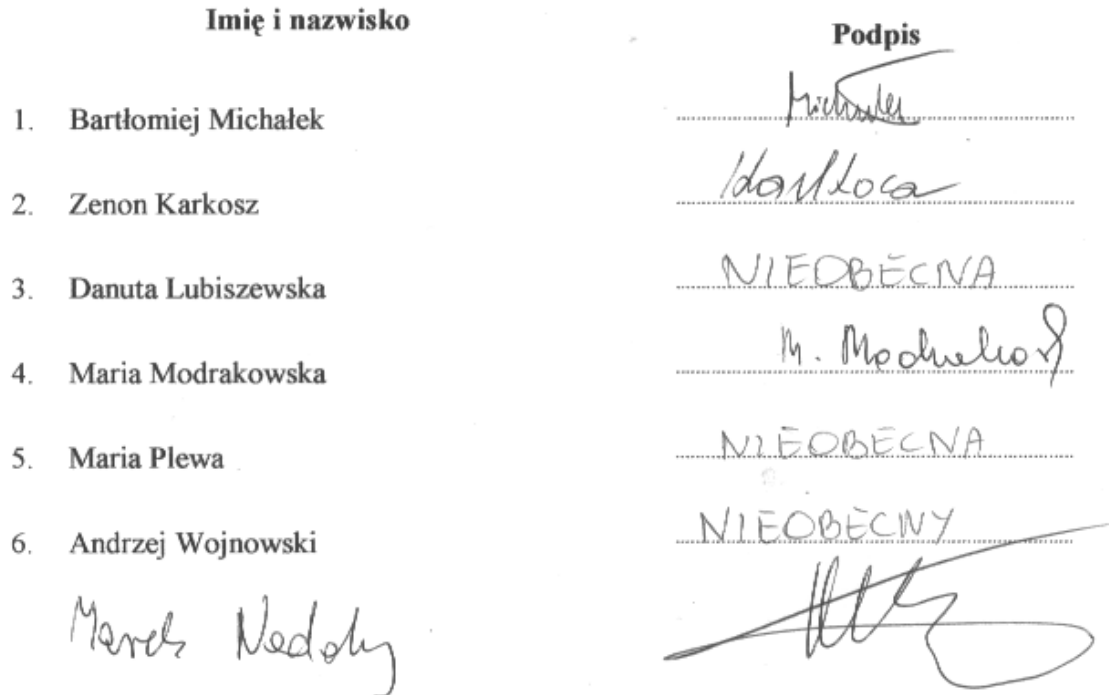 Imię i nazwisko Podpis
1. Bartłomiej Michałek
2. Zenon Karkosz
3. Danuta Lubiszewska NIEOBECNA
4. Maria Modrakowska M.
5. Maria Plewa NIEOBECNA
6. Andrzej Wojnowski NIEOBECNY
Marek